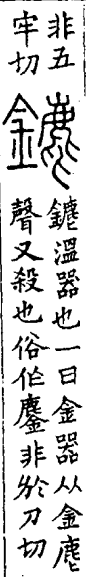 非五
牢切
䥝
䥝溫器也一曰金器从金麀
聲又殺也俗作鏖非於刀切